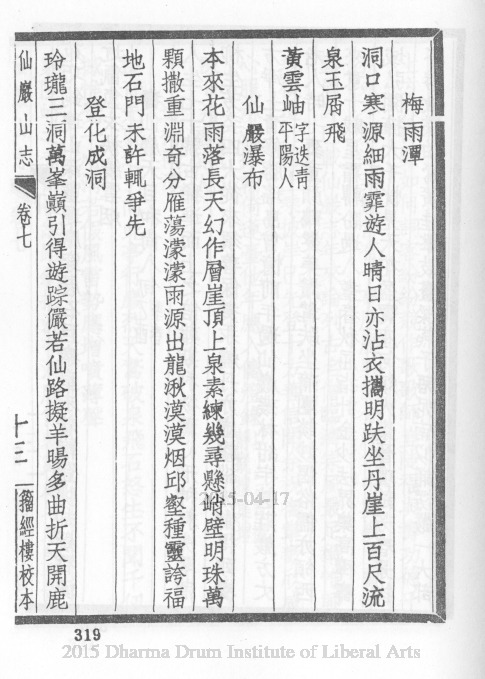 梅雨潭
洞口寒源細雨霏遊人晴日亦沾衣攜明趺坐丹崖上百尺流
泉玉屑飛
黃雲岫字迭青平陽人
仙嚴瀑布
本來花雨落長天幻作層崖頂上泉素練幾尋懸峭壁明珠萬
顆撒重淵奇分雁蕩濛濛雨源出龍湫漠漠烟邱壑種靈誇福
地石門未許輒爭先
登化成洞
玲瓏三洞萬峯巔引得遊踪儼若仙路擬羊腸多曲折天開鹿
仙嚴山志
卷七
十三
籀經樓校本
319
2015-04-17
2015 Dharma Drum Institute of Liberal Arts